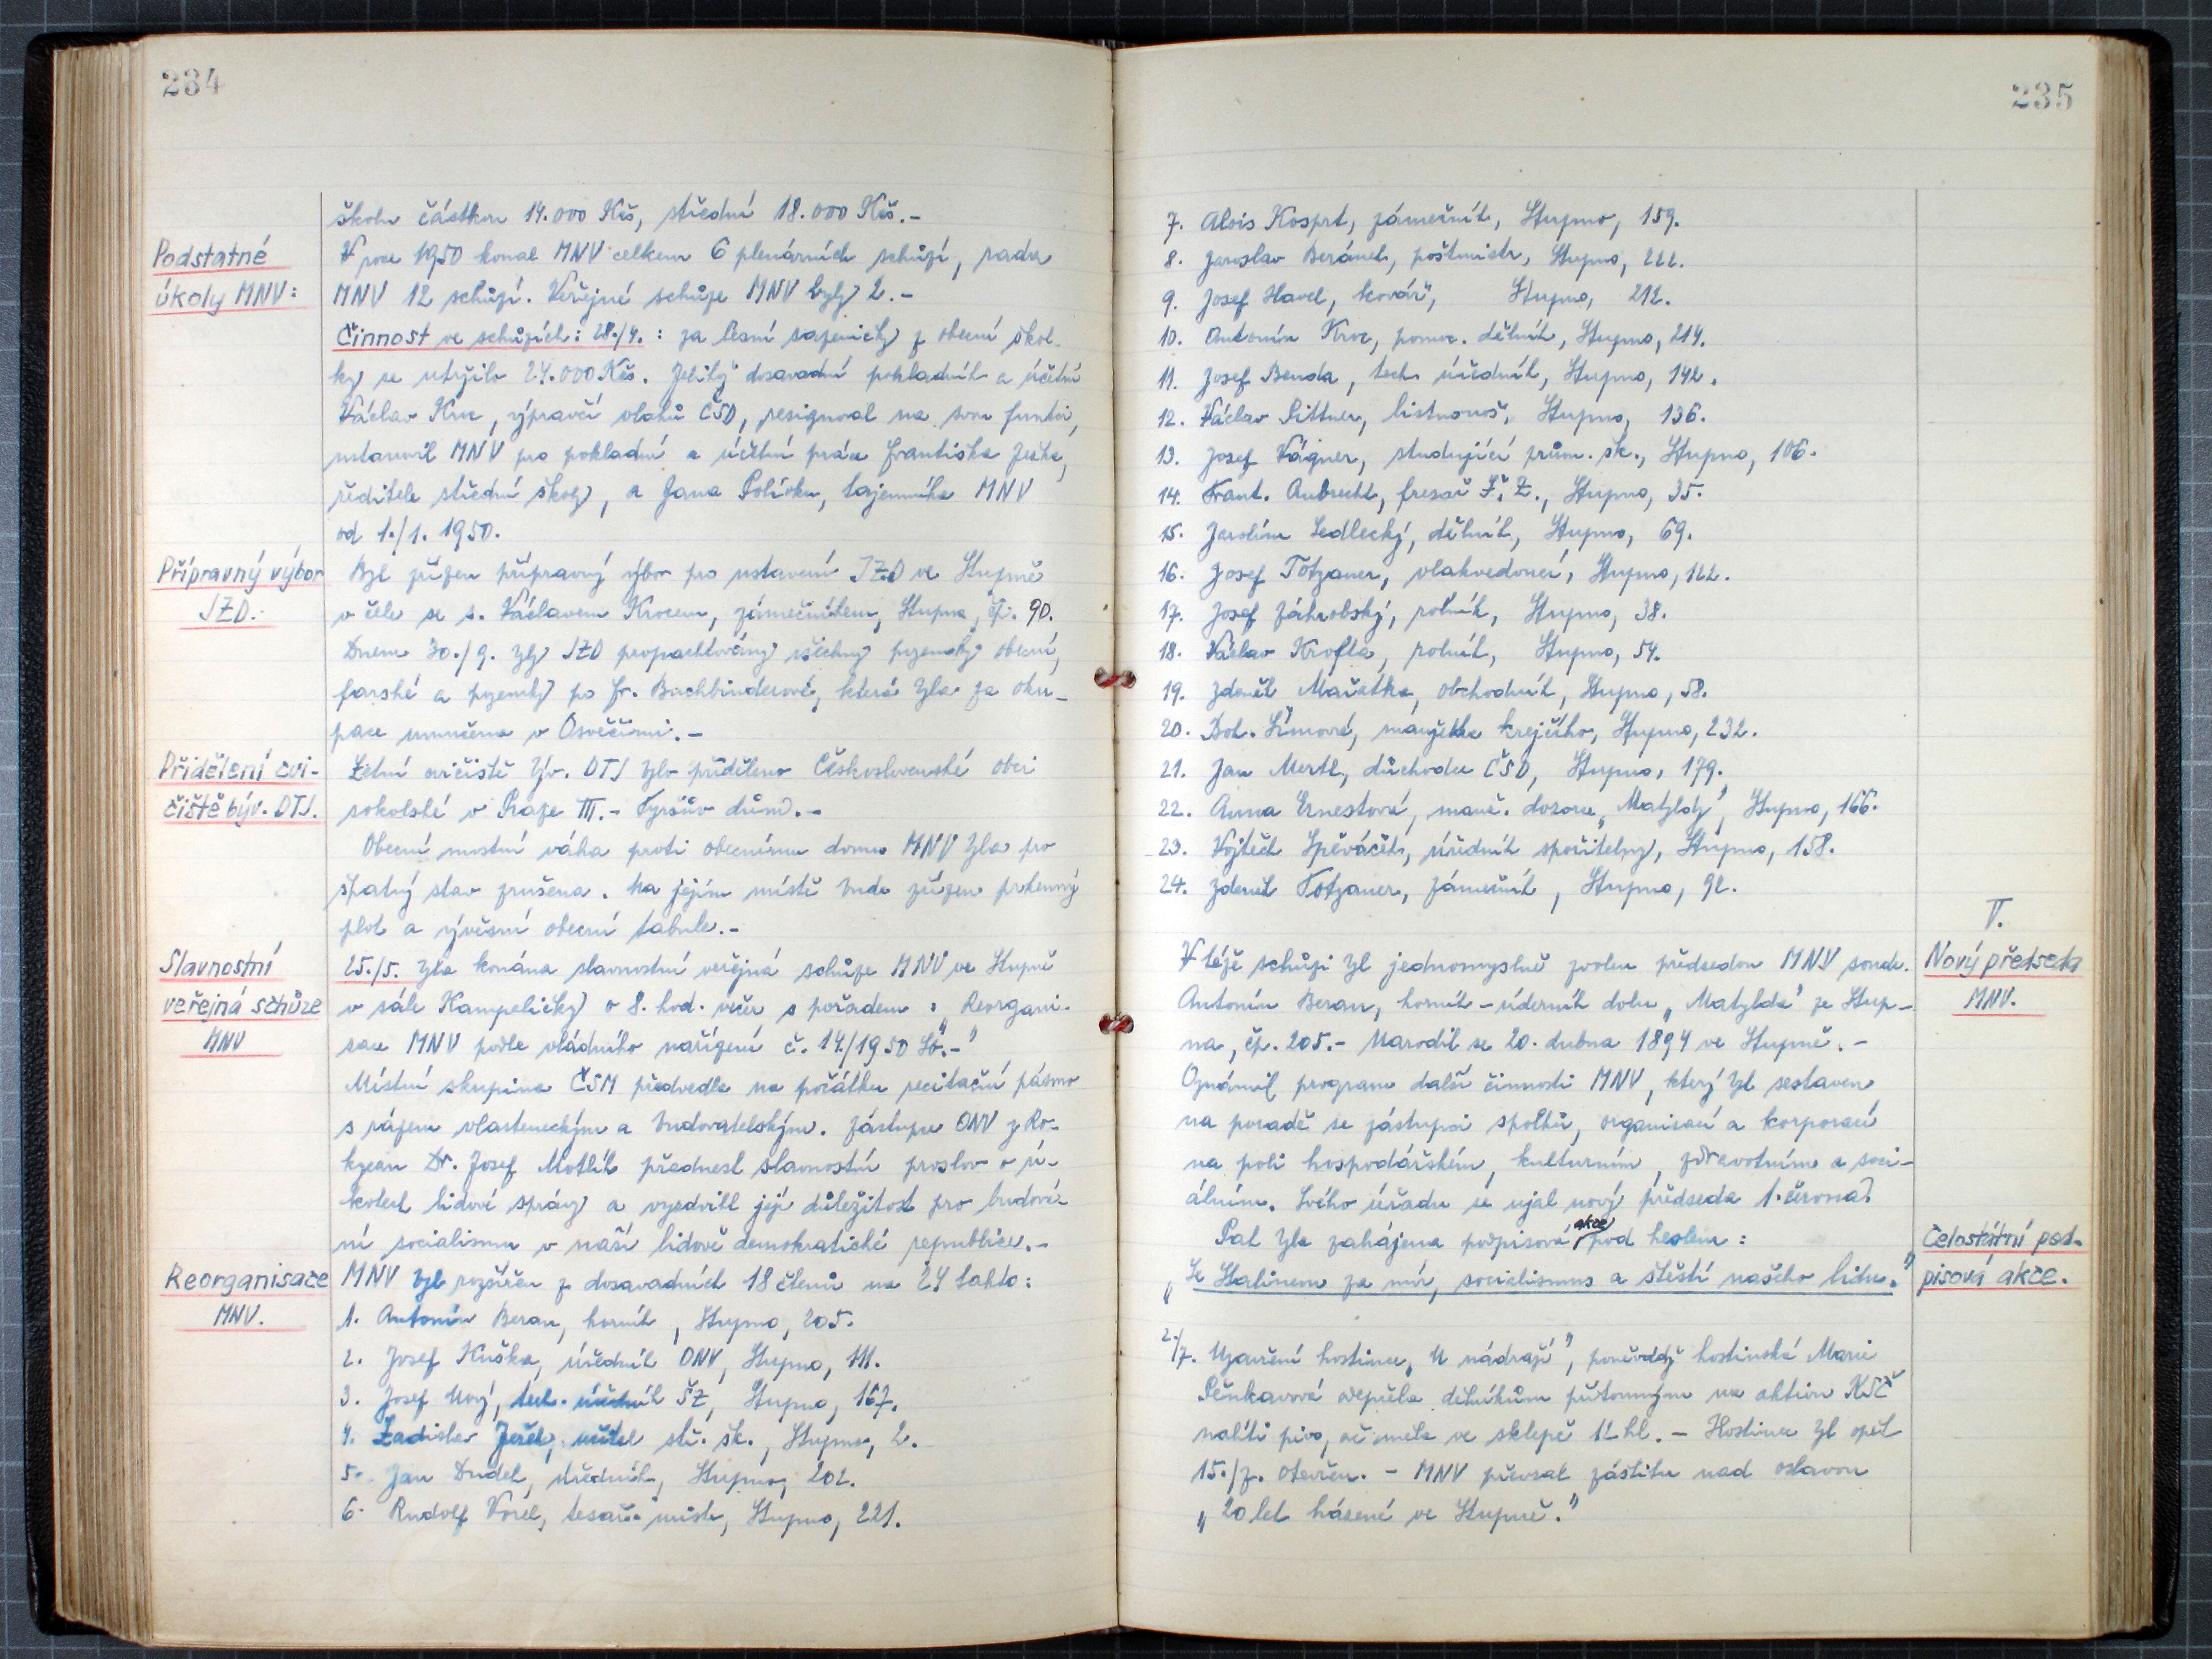 234
školu částkou 14.000 Kčs, střední 18.000 Kčs.-
Podstatné
úkoly MNV:
V roce 1950 konal MNV celkem 6 plenárních schůzí, rada
MNV 12 schůzí. Veřejné schůze MNV byly 2.-
Činnost ve schůzích: 28./4.: za lesní sazeničky z obecní škol-
ky se utržilo 24.000 Kčs. Jelikož dosavadní pokladník a účetní
Václav Kroc, výpravčí vlaků ČSD, resignoval na svou funkci,
ustanovil MNV pro pokladní a účetní práce Františka Ježka,
ředitele střední školy, a Jana Polívku, tajemníka MNV
od 1./1. 1950.
Přípravný výbor
JZD:
Byl zřízen přípravný výbor pro ustavení JZD ve Stupně
v čele se s. Václavem Krocem, zámečníkem, Stupno, čp. 90.
Dnem 30./9. byly JZD propachtovány všechny pozemky obecní,
farské a pozemky po Fr. Buchbinderové, která byla za oku-
pace umučena v Osvěčimi.-
Přidělení cvi-
čiště býv. DTJ.
Letní cvičiště býv. DTJ bylo přiděleno Československé obci
sokolské v Praze III.- Tyršův dům.-
Obecní mostní váha proti obecnímu domu MNV byla pro
špatný stav zrušena. Na jejím místě bude zřízen prkenný
plot a vývěsní obecní tabule.-
Slavnostní
veřejná schůze
MNV
25./5. byla konána slavnostní veřejná schůze MNV ve Stupně
v sále Kampeličky o 8. hod. večer s pořadem: „Reorgani-
sace MNV podle vládního nařízení č. 14/1950 Sb.-"
Místní skupina ČSM předvedla na počátku recitační pásmo
s rázem vlasteneckým a budovatelským. Zástupce ONV z Ro-
kycan Dr. Josef Motlík přednesl slavnostní proslov o ú-
kolech lidové správy a vyzdvihl její důležitost pro budová-
ní socialismu v naší lidově demokratické republice.-
Reorganisace
MNV.
MNV byl rozšířen z dosavadních 18 členů na 24 takto:
1. Antonín Beran, horník, Stupno, 205.
2. Josef Kuška, úředník ONV, Stupno, 111.
3. Josef Nový, tech. úředník ŠZ, Stupno, 167.
4. Ladislav Ježek, učitel stř. šk., Stupno, 2.
5. Jan Dudek, úředník, Stupno, 202.
6. Rudolf Vorel, tesař. mistr, Stupno, 221.
235
7. Alois Kosprt, zámečník, Stupno, 159.
8. Jaroslav Beránek, poštmistr, Stupno, 222.
9. Josef Havel, kovář, Stupno, 212.
10. Antonín Kroc, pomoc. dělník, Stupno, 214.
11. Josef Benda, tech. úředník, Stupno, 142.
12. Václav Pittner, listonoš, Stupno, 136.
13. Josef Vágner, studující prům. šk., Stupno, 106.
14. Frant. Aubrecht, fresař Š. Z., Stupno, 35.
15. Jarolím Sedlecký, dělník, Stupno, 69.
16. Josef Tötzauer, vlakvedoucí, Stupno, 122.
17. Josef Záhrobský, rolník, Stupno, 38.
18. Václav Krofta, rolník, Stupno, 54.
19. Zdeněk Mařatka, obchodník, Stupno, 58.
20. Boh. Šímová, manželka krejčího, Stupno, 232.
21. Jan Mertl, důchodce ČSD, Stupno, 179.
22. Anna Ernestová, manž. dozorce „Matyldy", Stupno, 166.
23. Vojtěch Spěváček, úředník spořitelny, Stupno, 158.
24. Zdeněk Tötzauer, zámečník, Stupno, 92.
V.
Nový předseda
MNV.
V téže schůzi byl jednomyslně zvolen předsedou MNV soudr.
Antonín Beran, horník-úderník dolu „Matylda" ze Stup-
na, čp. 205.- Narodil se 20. dubna 1894 ve Stupně.-
Oznámil program další činnosti MNV, který byl sestaven
na poradě se zástupci spolků, organisací a korporací
na poli hospodářském, kulturním, zdravotním a soci-
álním. Svého úřadu se ujal nový předseda 1. června.
Celostátní pod-
pisová akce.
Pak byla zahájena podpisová akce pod heslem:
„Se Stalinem za mír, socialismus a štěstí našeho lidu."
2./7. Uzavření hostince „U nádraží", poněvadž hostinská Marie
odepřela dělníkům přítomným na aktivu KSČ
nalíti pivo, ač měla ve sklepě 12 hl.- Hostinec byl opět
15./7. otevřen.- MNV převzal záštitu nad oslavou
„20 let házené ve Stupně."